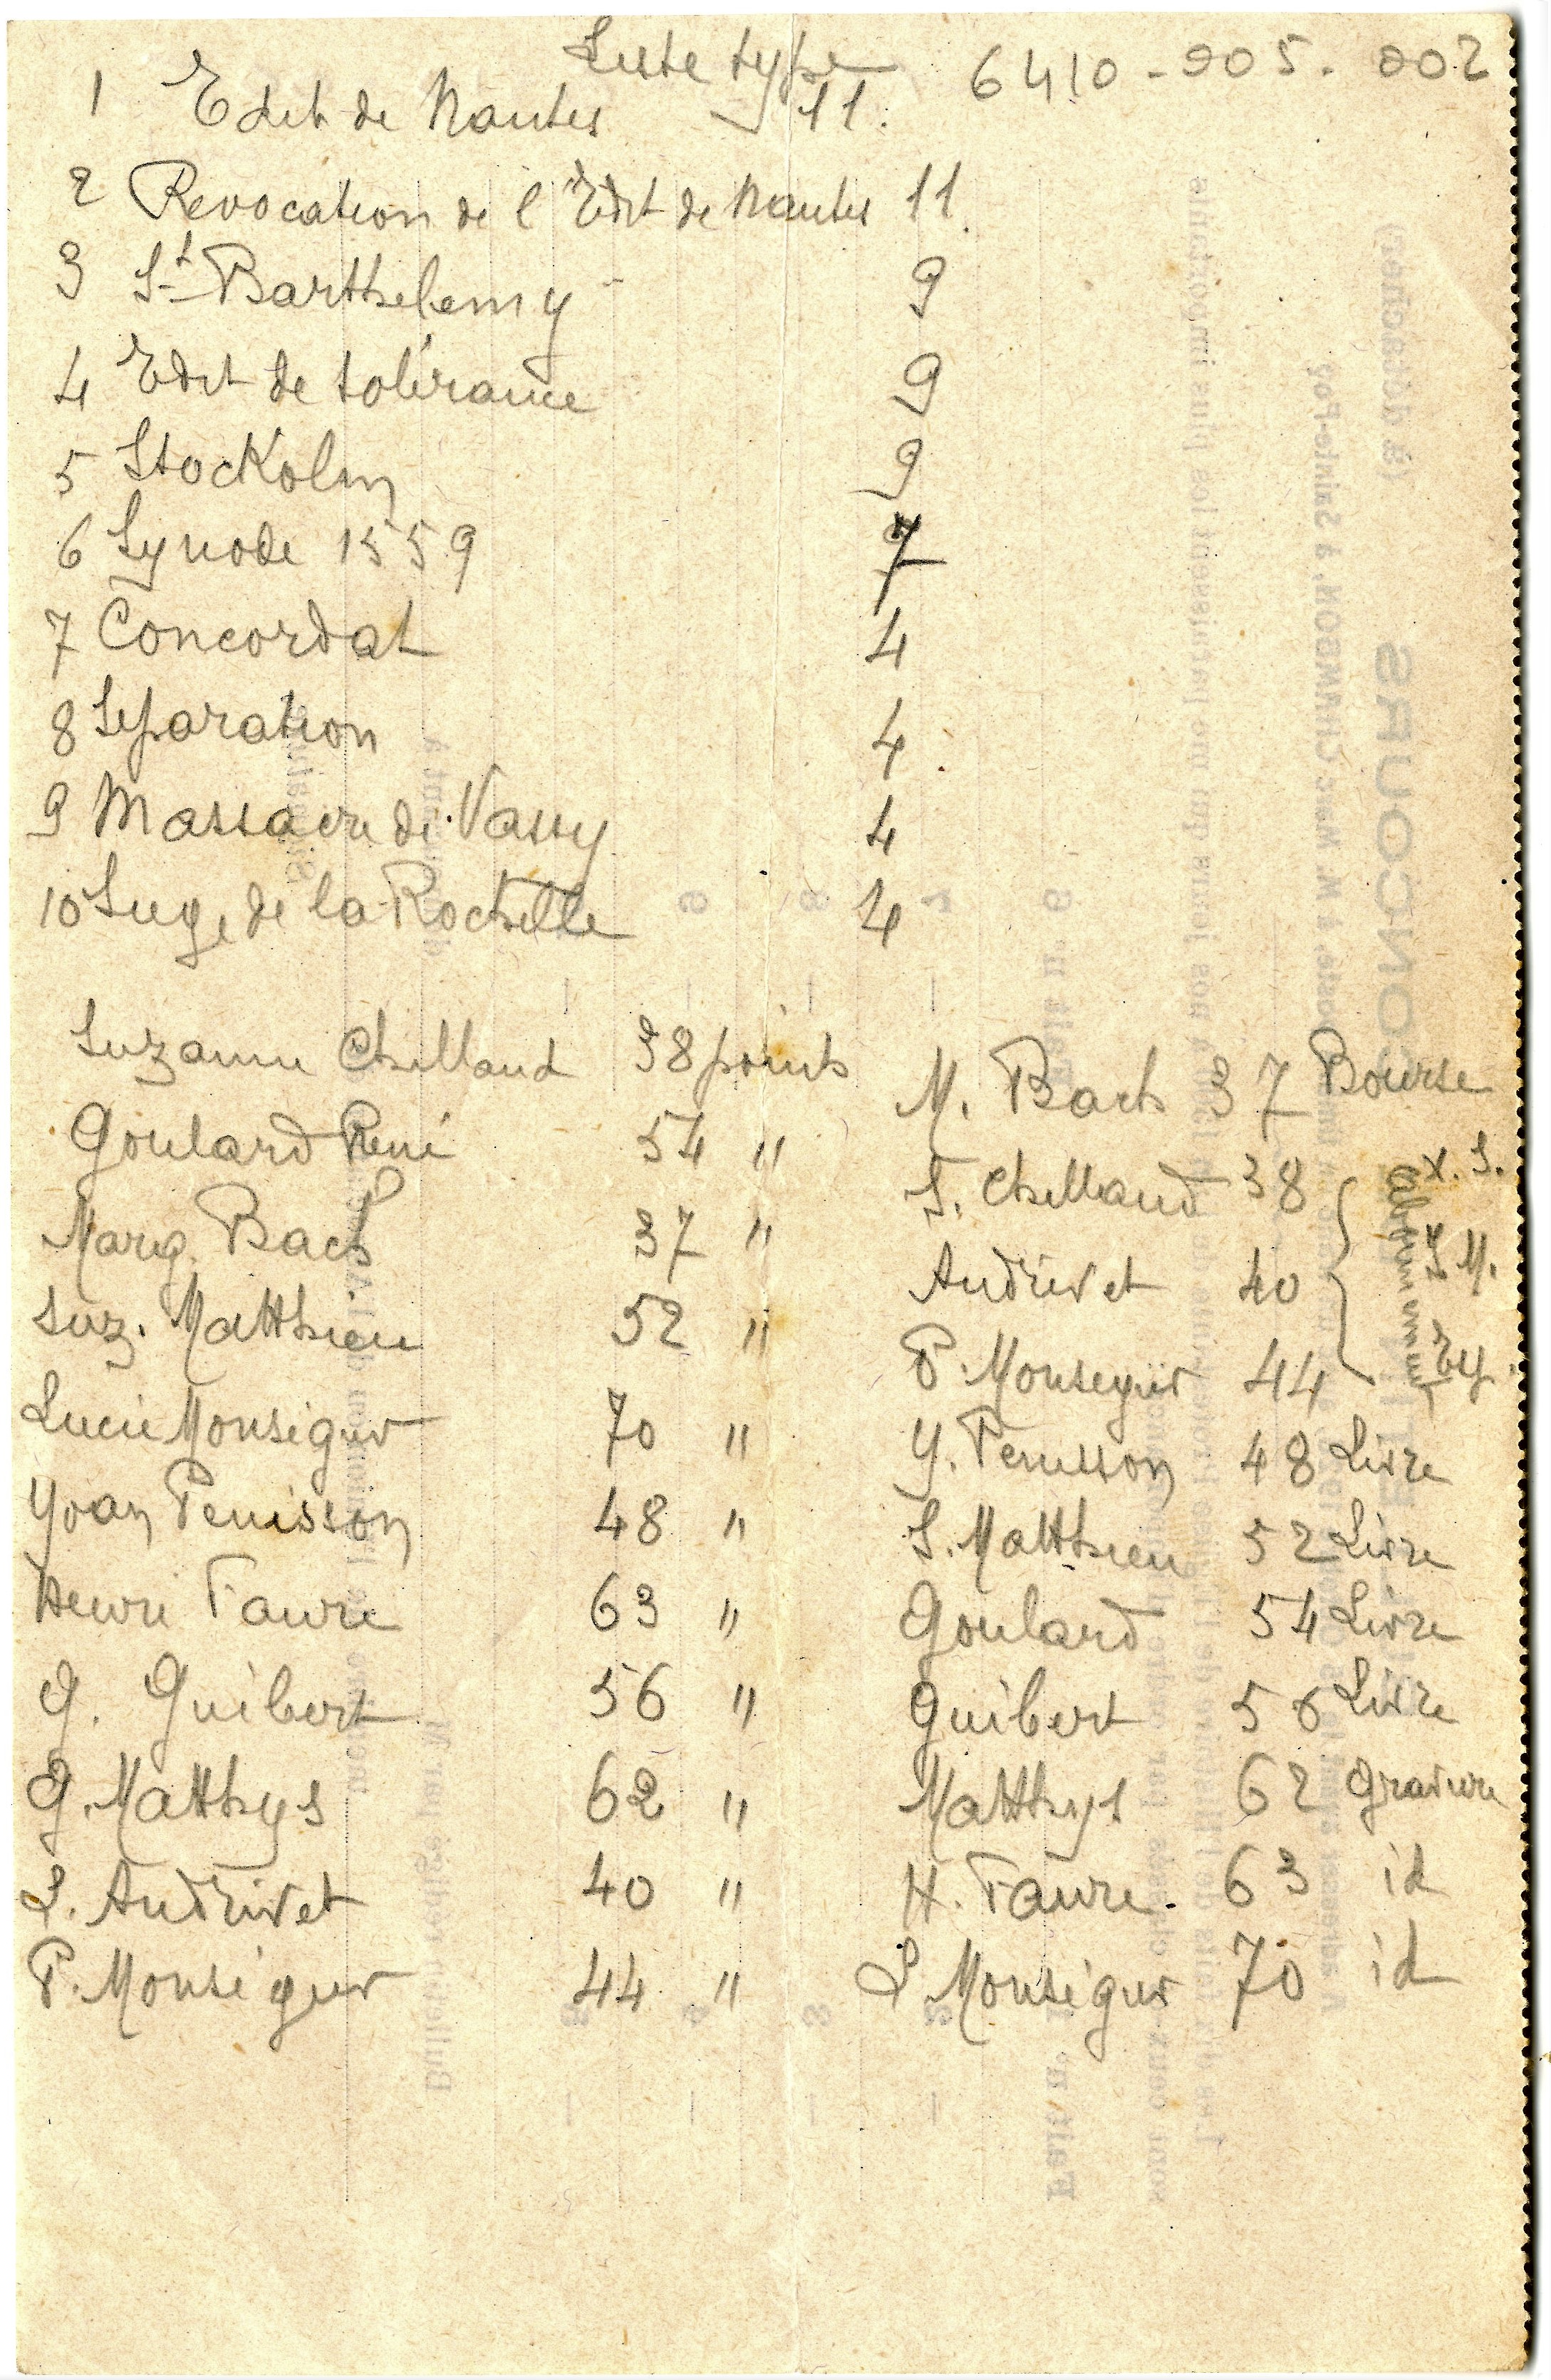 Liste type 6410-205.002
1 Edit de Nantes 11.
2 Revocation de l'Edit de Nantes 11.
3 St Barthelemy 9
4 Edit de tolérance 9
5 Stockolm 9
6 Synode 1559 7
7 Concordat 4
8 Separation 4
9 Massacre de Vassy 4
10 Siege de la Rochelle 4
Suzanne Chelland 38 points
Goulard René 54 "
Marg. Bach 37 "
Suz. Matthieu 52 "
Lucie Monségur 70 "
Yvan Penisson 48 "
Henri Faure 63 "
G. Guibert 56 "
G. Matthys 62 "
L. Audrivet 40 "
P. Monségur 44 "
M. Bach 37 Bourse
S. Chelland 38
Audrivet 40
P. Monsegur 44
Y. Penisson 48 Livre
S. Matthieu 52 Livre
Goulard 54 Livre
Guibert 56 Livre
Matthys 62 Gravure
H. Faure. 63 id
L Monségur 70 id